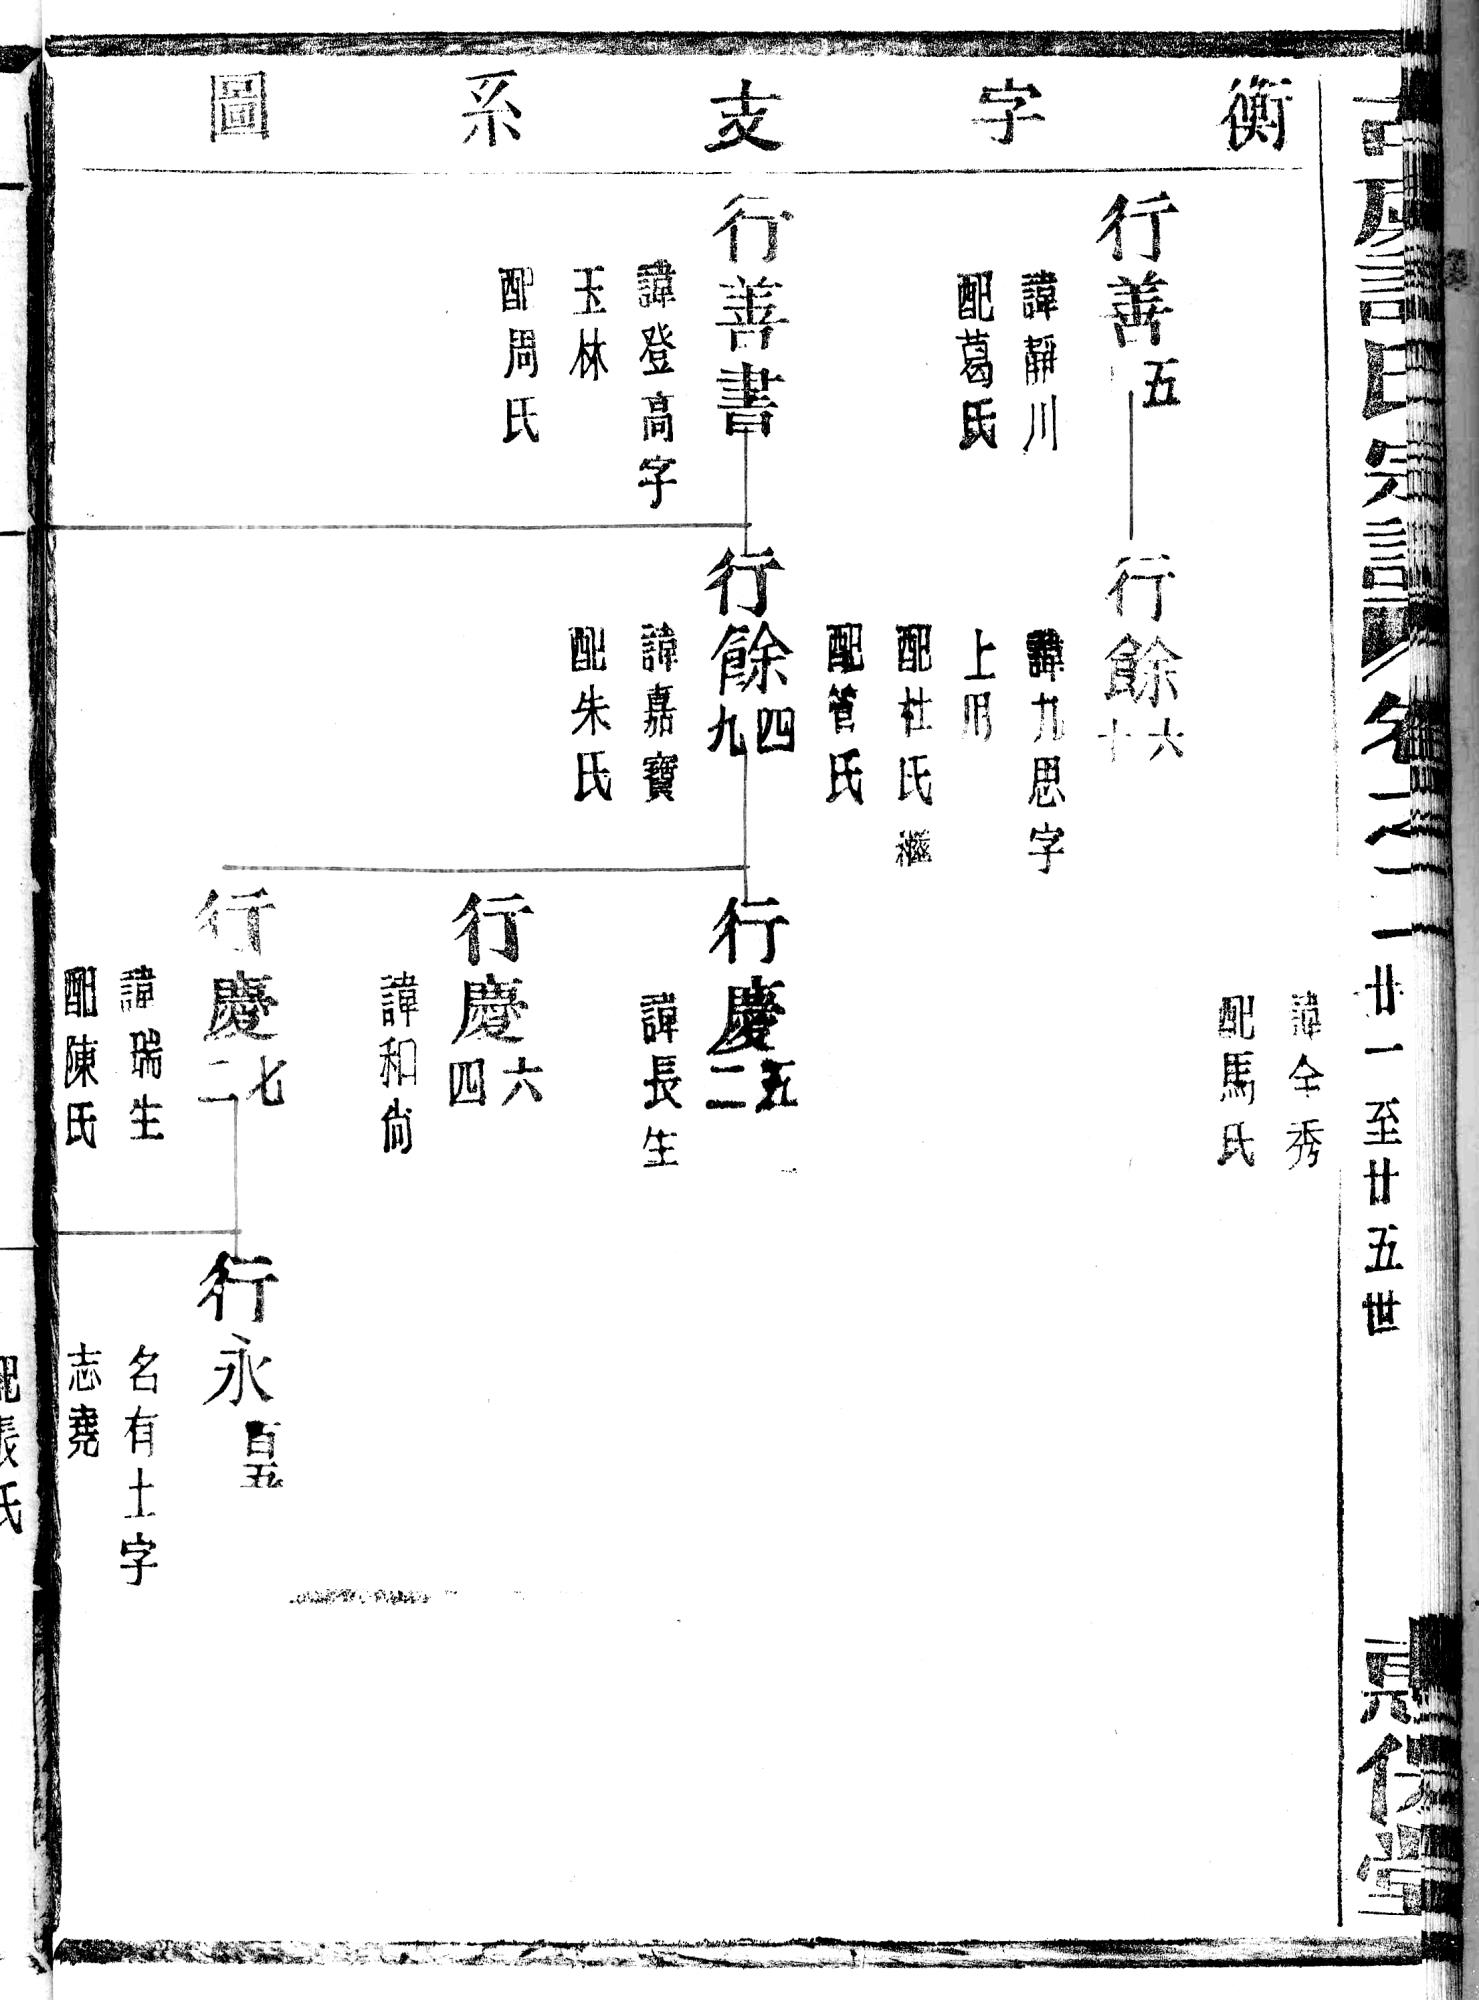 衡字支系圖
行善五
諱靜川
配葛氏
行餘六十
諱九思字
上用
配杜氏繼
配管氏
諱全秀
配馬氏
行善書
諱登高字
玉林
配周氏
行餘四九
諱嘉寶
配朱氏
行慶五二
諱長生
行慶六四
諱和尚
行慶七二
諱瑞生
配陳氏
行永百五
名有土字
志堯
氏宗譜
卷之二
廿一至廿五世
堂
配張氏